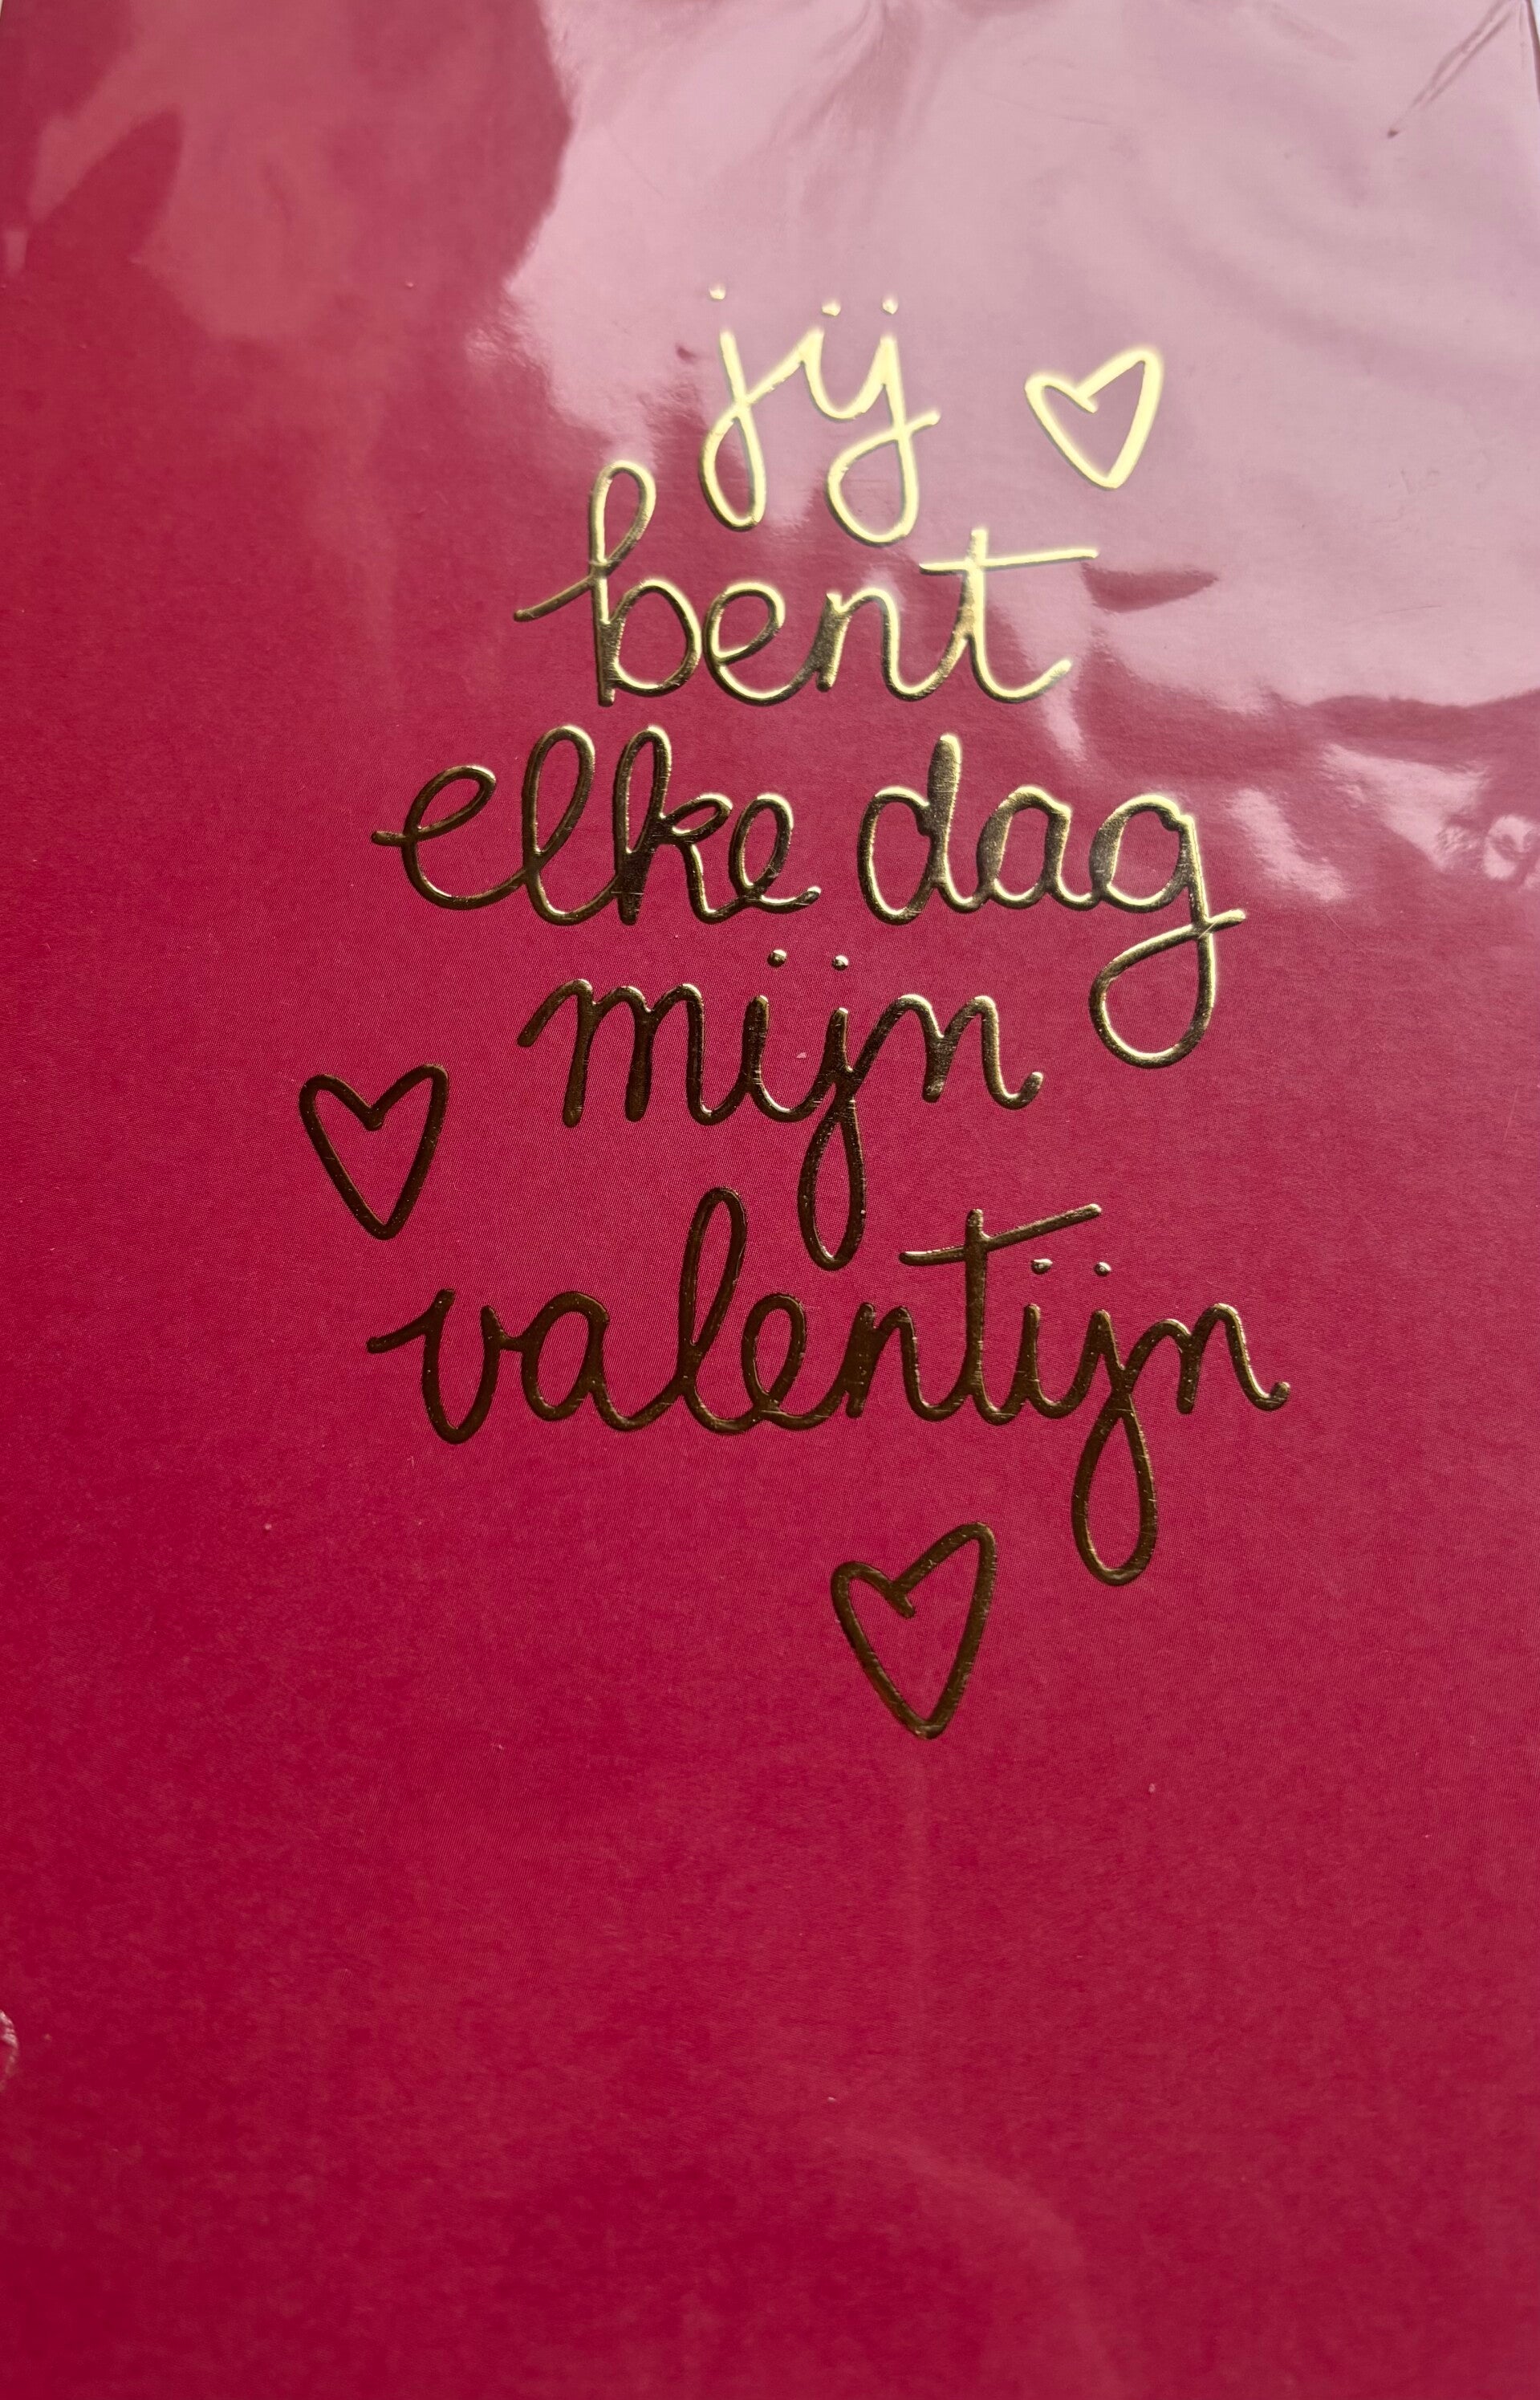 jij
bent
elke dag
mijn
valentijn